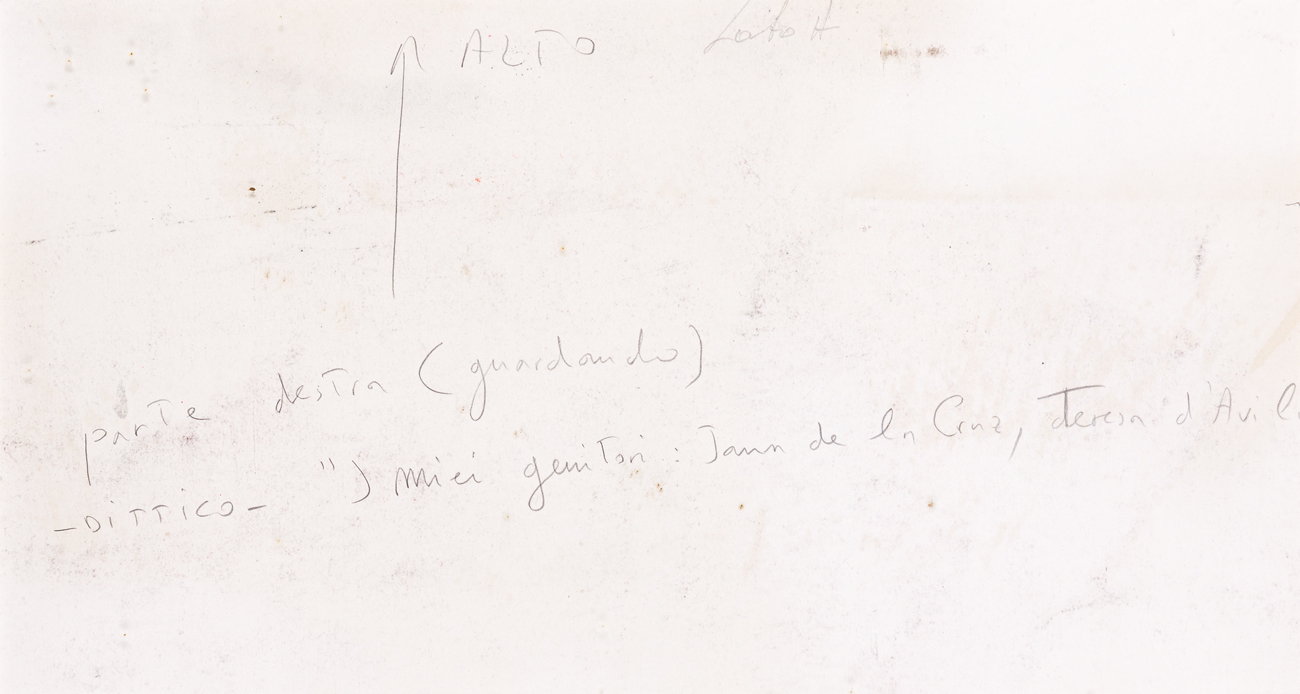 ↑ ALTO
parte destra (guardando)
-DITTICO- "I miei genitori: Jaun de la Cruz, Teresa d'Avil